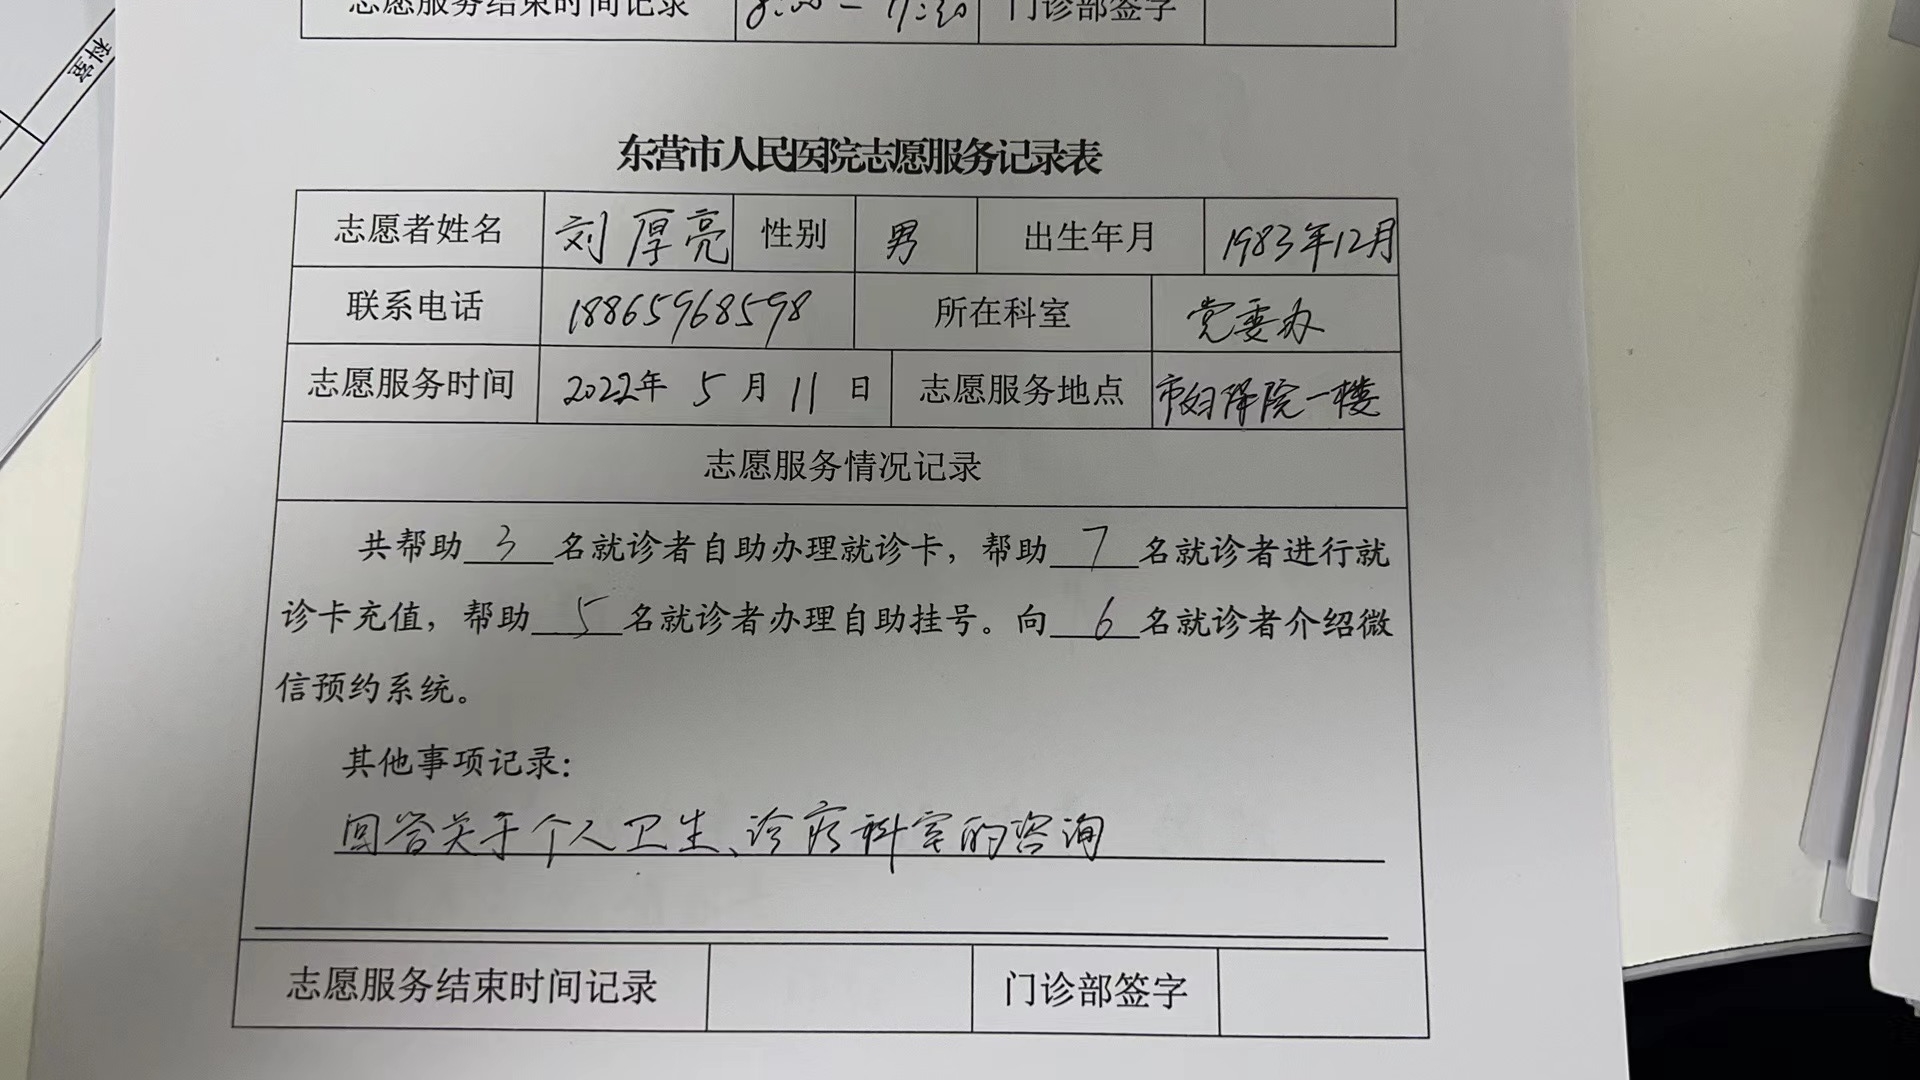 志愿服务结束时间记录 8:00-11:30 门诊部签字
科室
东营市人民医院志愿服务记录表
志愿者姓名 刘厚亮 性别 男 出生年月 1983年12月
联系电话 18865968598 所在科室 党委办
志愿服务时间 2022年 5 月 11 日 志愿服务地点 市妇保院一楼
志愿服务情况记录
共帮助 3 名就诊者自助办理就诊卡，帮助 7 名就诊者进行就
诊卡充值，帮助 5 名就诊者办理自助挂号。向 6 名就诊者介绍微
信预约系统。
其他事项记录：
回答关于个人卫生、诊疗科室的咨询
志愿服务结束时间记录 门诊部签字